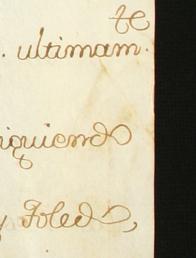 te
. ultimam.
iquiendo
y Toledo,